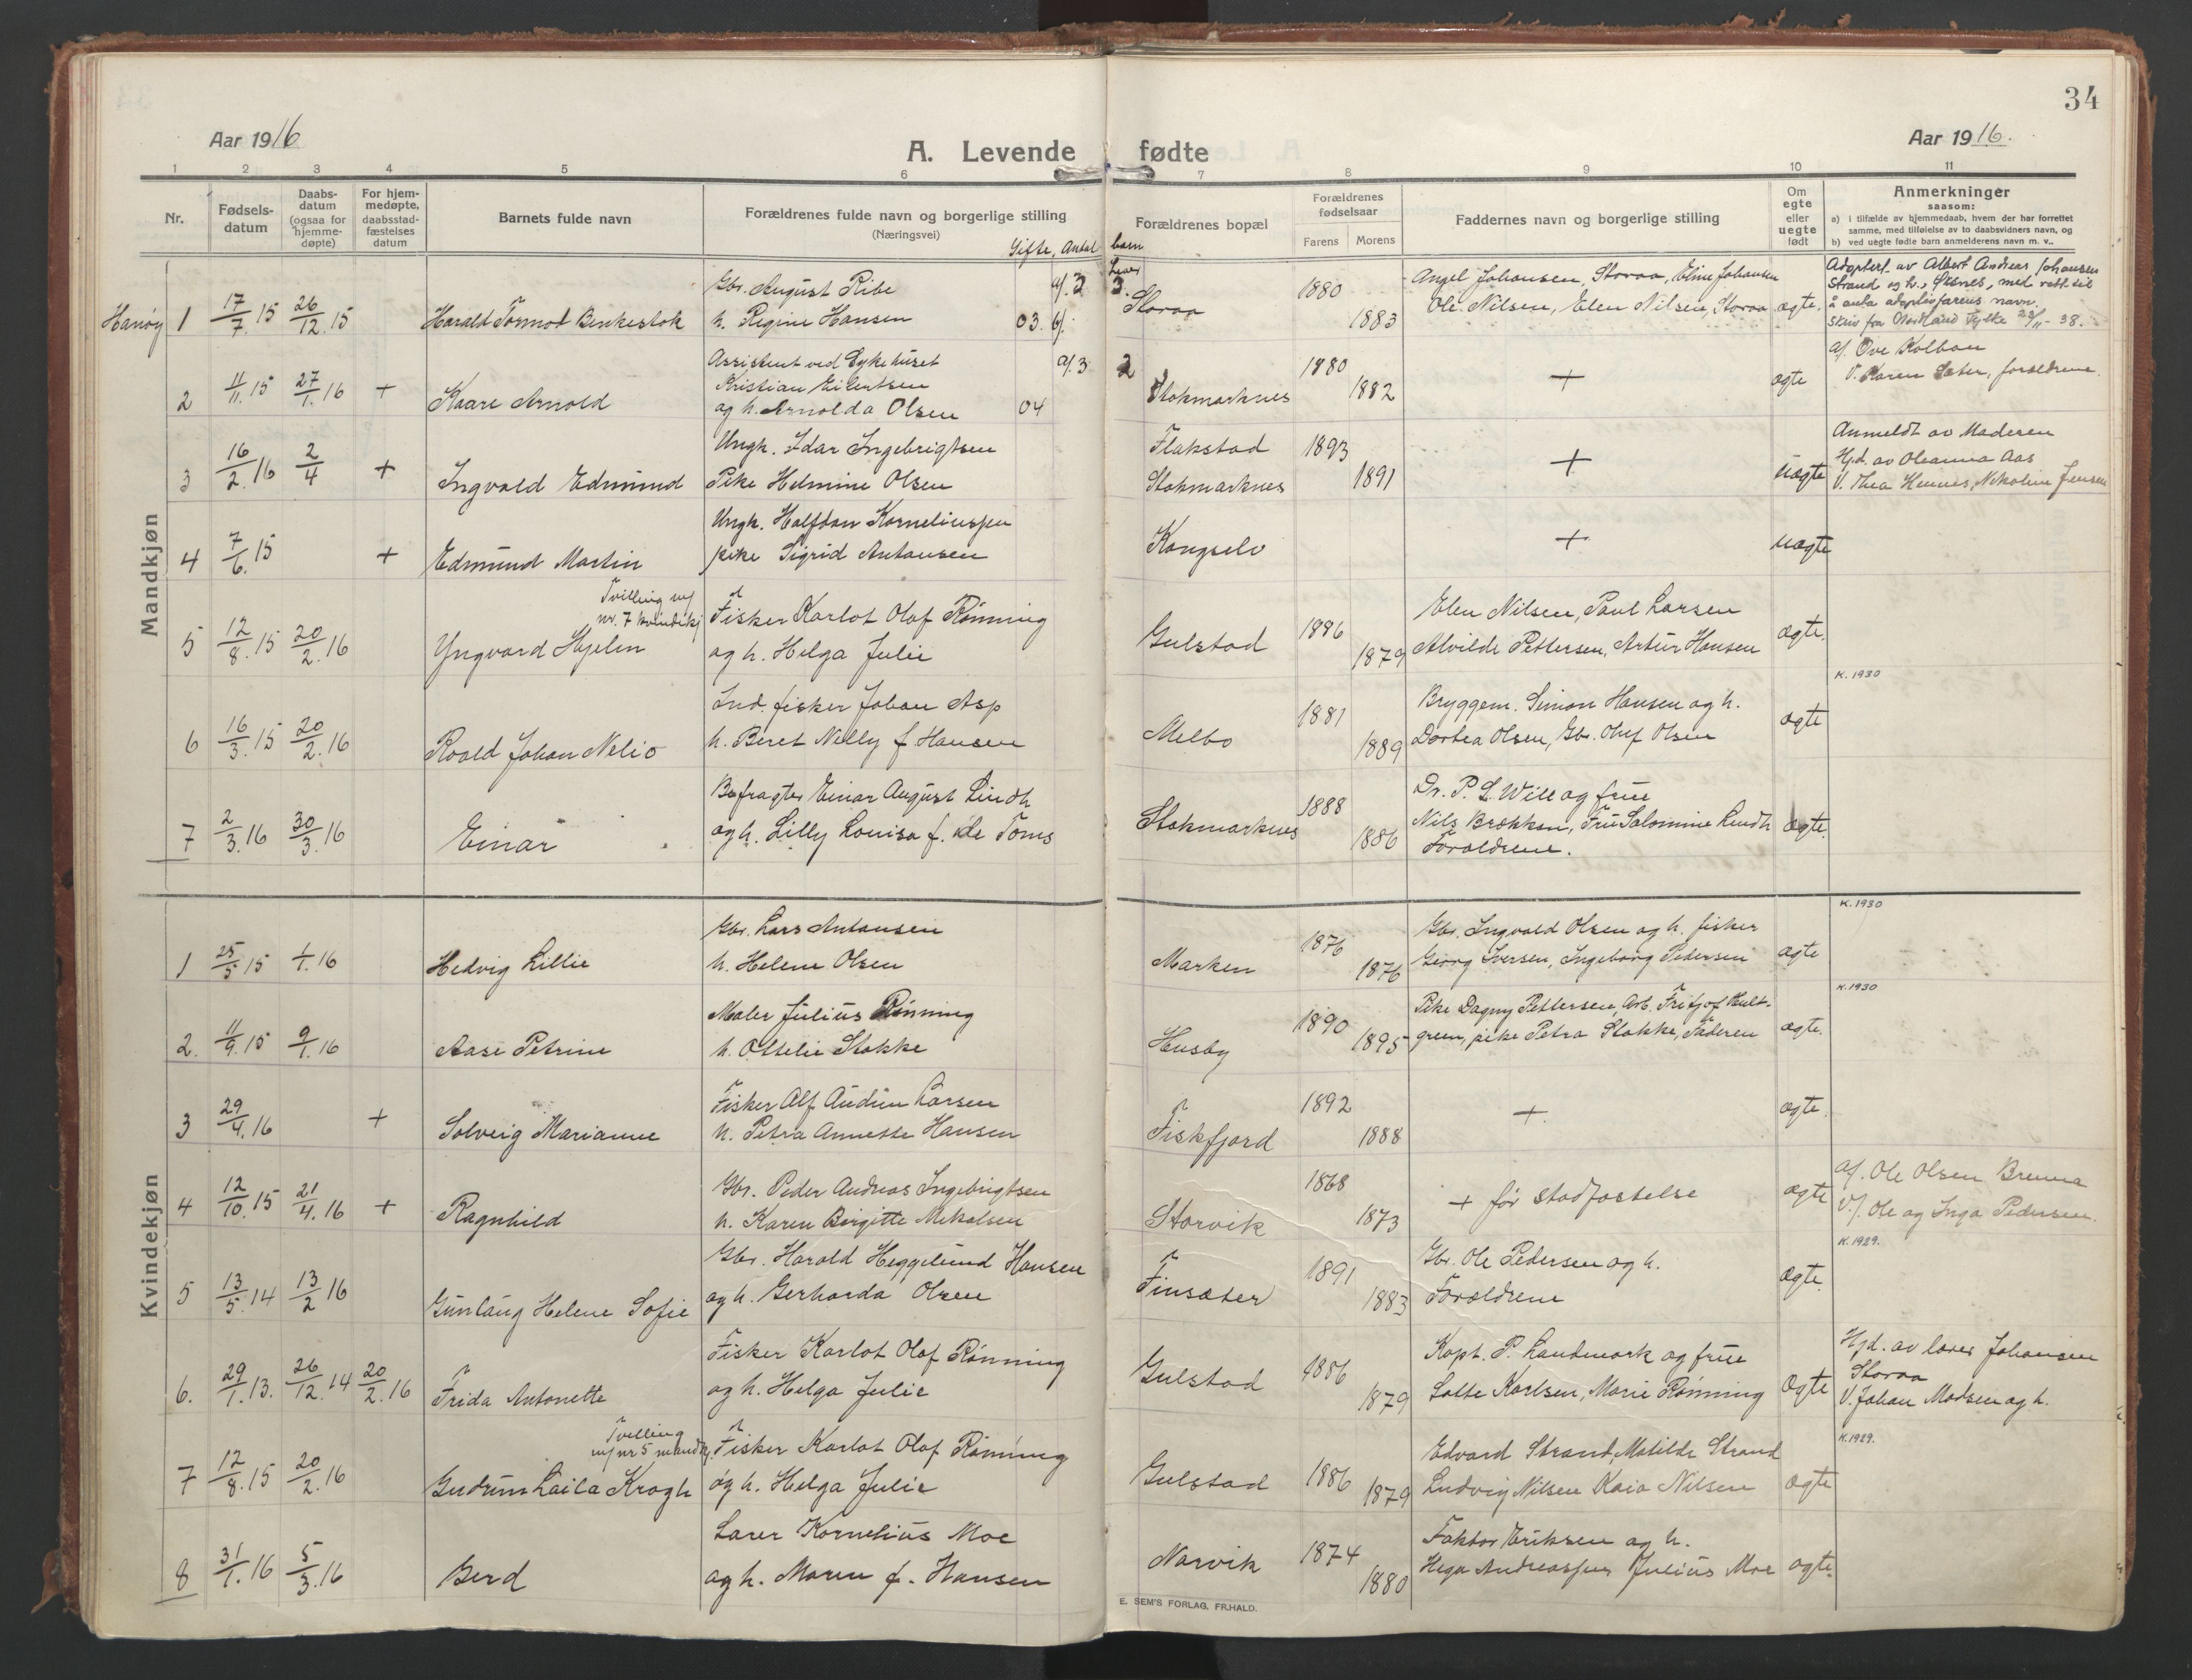 34
Aar 1916
A. Levende fødte
Aar 1916.
1 2 3 4 5 6 7 8 9 10 11
Nr.
Fødsels-
datum
Daabs-
datum
(ogsaa for
hjemme-
døpte)
For hjem-
medøpte,
daabsstad-
fæstelses
datum
Barnets fulde navn
Forældrenes fulde navn og borgerlige stilling
(Næringsvei)
Gifte, Antal barn
Forældrenes bopæl
Forældrenes
fødselsaar
Farens Morens
Faddernes navn og borgerlige stilling
Om
egte
eller
uegte
født
Anmerkninger
saasom:
a) i tilfælde av hjemmedaab, hvem der har forrettet
samme, med tilføielse av to daabsvidners navn, og
b) ved uegte fødte barn anmelderens navn m. v..
Mandkjøn
Hanøy 1 17/7.15 26/12.15 Harald Tormod Benkestok
Gbr. August Ribe
h. Regine Hansen 03.
Storaa 1880 1883
Angel Johansen, Storaa, Eline Johansen
Ole Nilsen, Elen Nilsen, Storaa
ægte.
Adoptert av Albert Andreas Johansen
Strand og h., Sksnes, med rett til
å anta adoptivfarens navn.
Skriv fra Nordland Fylke 23/11-38.
2 11/11.15 27/1.16 + Kaare Arnold
Assistent ved Sykehuset a/.3 2
Kristian Eilertsen
og h. Arnolda Olsen 04
Stokmarknes 1880 1882
+
ægte
a/. Ove Kolban
V. Karen Sæter, forældrene
3 16/2.16 2/4 + Ingvald Edmund
Ungk. Idar Ingebrigtsen
Pike Helmine Olsen
Flakstad 1893
Stokmarknes 1891
+
uægte
Anmeldt av Moderen
Hjd. av Oleanna Aas
V. Thea Hennes, Nikoline Jensen
4 7/6.15 + Edmund Martin
Ungk. Halfdan Korneliussen
pike Sigrid Antonsen
Kongselv
+
uægte
Tvilling m/
nr. 7 kvindekj
5 12/8.15 20/2.16 Yngvard Hjelm
Fisker Karlot Olaf Rønning
og h. Helga Julie
Gulstad 1886 1879
Elen Nilsen, Paul Larsen
Alvilde Pettersen, Artur Hansen
ægte.
6 16/3.15 20/2.16 Roald Johan Nelio
Ind. fisker Johan Asp
h. Beret Nelly f Hansen
Melbo 1881 1889
Bryggem. Simon Hansen og h.
Dortea Olsen, Gbr. Oluf Olsen
ægte
K. 1930
7 2/3.16 30/3.16 Einar
Befragter Einar August Lindh
og h. Lilly Lovisa f. de Toms
Stokmarknes 1888 1886
Dr. P. L. Will og frue
Nils Brækkan, Fru Salomine Lindh
Forældrene.
ægte.
Kvindekjøn
1 25/5 15 1/1.16 Hedvig Lillie
Gbr. Lars Antonsen
h. Helene Olsen
Marken 1876 1876
Gbr. Ingvald Olsen og h. fisker
Georg Iversen, Ingeborg Pedersen
ægte
K. 1930
2. 11/9.15 9/1.16 Aase Petrine
Maler Julius Rønning
h. Ottelie Stokke
Husby 1890 1895
Pike Dagny Pettersen, Arb. Fritjof Hult-
green, pike Petra Stokke, Faderen
ægte.
K. 1930
3 29/4.16 + Solveig Marianne
Fisker Alf Audun Larsen
h. Petra Annette Hansen
Fiskfjord 1892 1888
+
ægte.
4 12/10.15 21/4.16 + Ragnhild
Gbr. Peder Andreas Ingebrigtsen
h. Karen Birgitte Mikalsen
Storvik 1868 1873
+ før stadfæstelse
ægte
a/. Ole Olsen Brenna
V/. Ole og Inga Pedersen.
5 13/5.14 13/2 16 Gunlaug Helene Sofie
Gbr. Harald Heggelund Hansen
og h. Gerharda Olsen
Finsæter 1891 1883
Gbr. Ole Pedersen og h.
Forældrene
ægte.
K. 1929.
6. 29/1.13. 26/12.14 20/2.16 Frida Antonette
Fisker Karlot Olaf Rønning
og h. Helga Julie
Gulstad 1886 1879
Kapt. P. Landmark og frue
Lotte Karlsen, Marie Rønning
Ægte
Hjd. av lærer Johansen
Storaa
V. Johan Madsen og h.
Tvilling
m/ nr 5 mandkj.
7 12/8.15 20/2.16 Gudrun Laila Krogh
Fisker Karlot Olaf Rønning
og h. Helga Julie
Gulstad 1886 1879
Edvard Strand, Matilde Strand
Ludvig Nilsen Kaia Nilsen
ægte
K. 1929.
8 31/1.16 5/3.16 Berd
Lærer Kornelius Moe
og h. Maren f. Hansen
Narvik 1874 1880
Faktor Eriksen og h.
Helga Andreassen Julius Moe
ægte.
E. SEM'S FORLAG, FR.HALD.